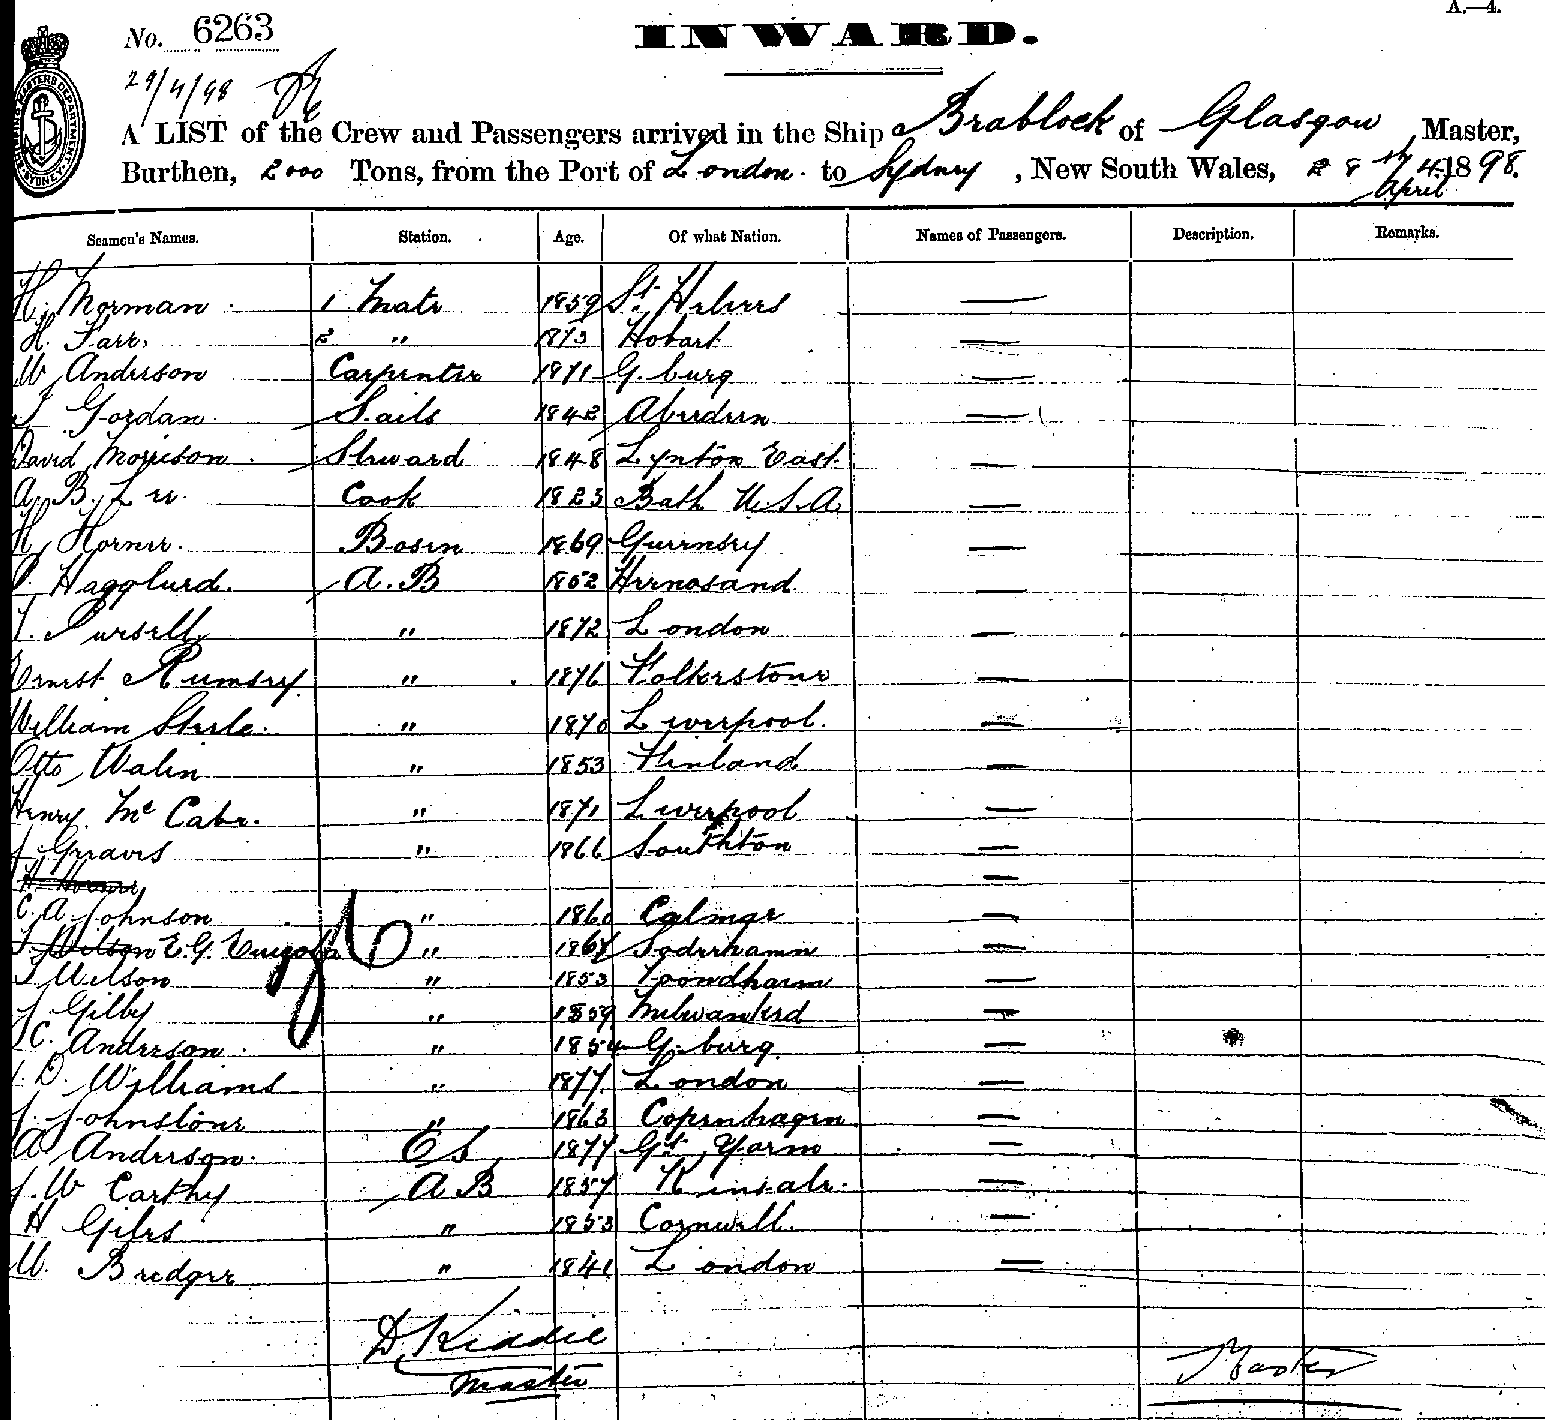 A.—4.
No. 6263
INWARD.
29/4/98
A LIST of the Crew and Passengers arrived in the Ship Brablock of Glasgow, Master,
Burthen, 2000 Tons, from the Port of London. to Sydney, New South Wales, 28th 4 1898.
April
Seamen's Names. Station. Age. Of what Nation. Names of Passengers. Description. Remarks.
H. Norman 1 Mate 1859 St. Heliers —
H. Farr. 2 " 1873 Hobart —
W Anderson Carpenter 1871 G. burg —
J Gordan Sails 1842 Aberdeen —
David Morrison Steward 1848 Lynton East —
A. B. Lee. Cook 1823 Bath U.S.A —
H. Horner. Bosen 1869 Guernsey —
Hagglurd. A.B 1852 Hernosand —
T. Pursell " 1872 London —
Ernest Rumsey. " 1876 Folkerstone —
William Steele. " 1870 Liverpool. —
Otto Walin " 1853 Finland —
Henry McCabe. " 1871 Liverpool —
J Greaves " 1866 Southton —
H. Horner —
C. A. Johnson " 1860 Calmar —
Wilson E. G. " 1867 Soderhamn —
Wilson " 1853 —
J Gilby " 1859 —
C. Anderson. " 1854 G. burg. —
D. Williams " 1877 London —
J. Johnstone " 1863 Copenhagen —
A Anderson. OS 1877 Gt. Yarm —
J. W Carthy AB 1857 Kinsale. —
H Giles " 1853 Cornwell. —
W. Bredger " 1841 London —
D Kiddie
Master
Master